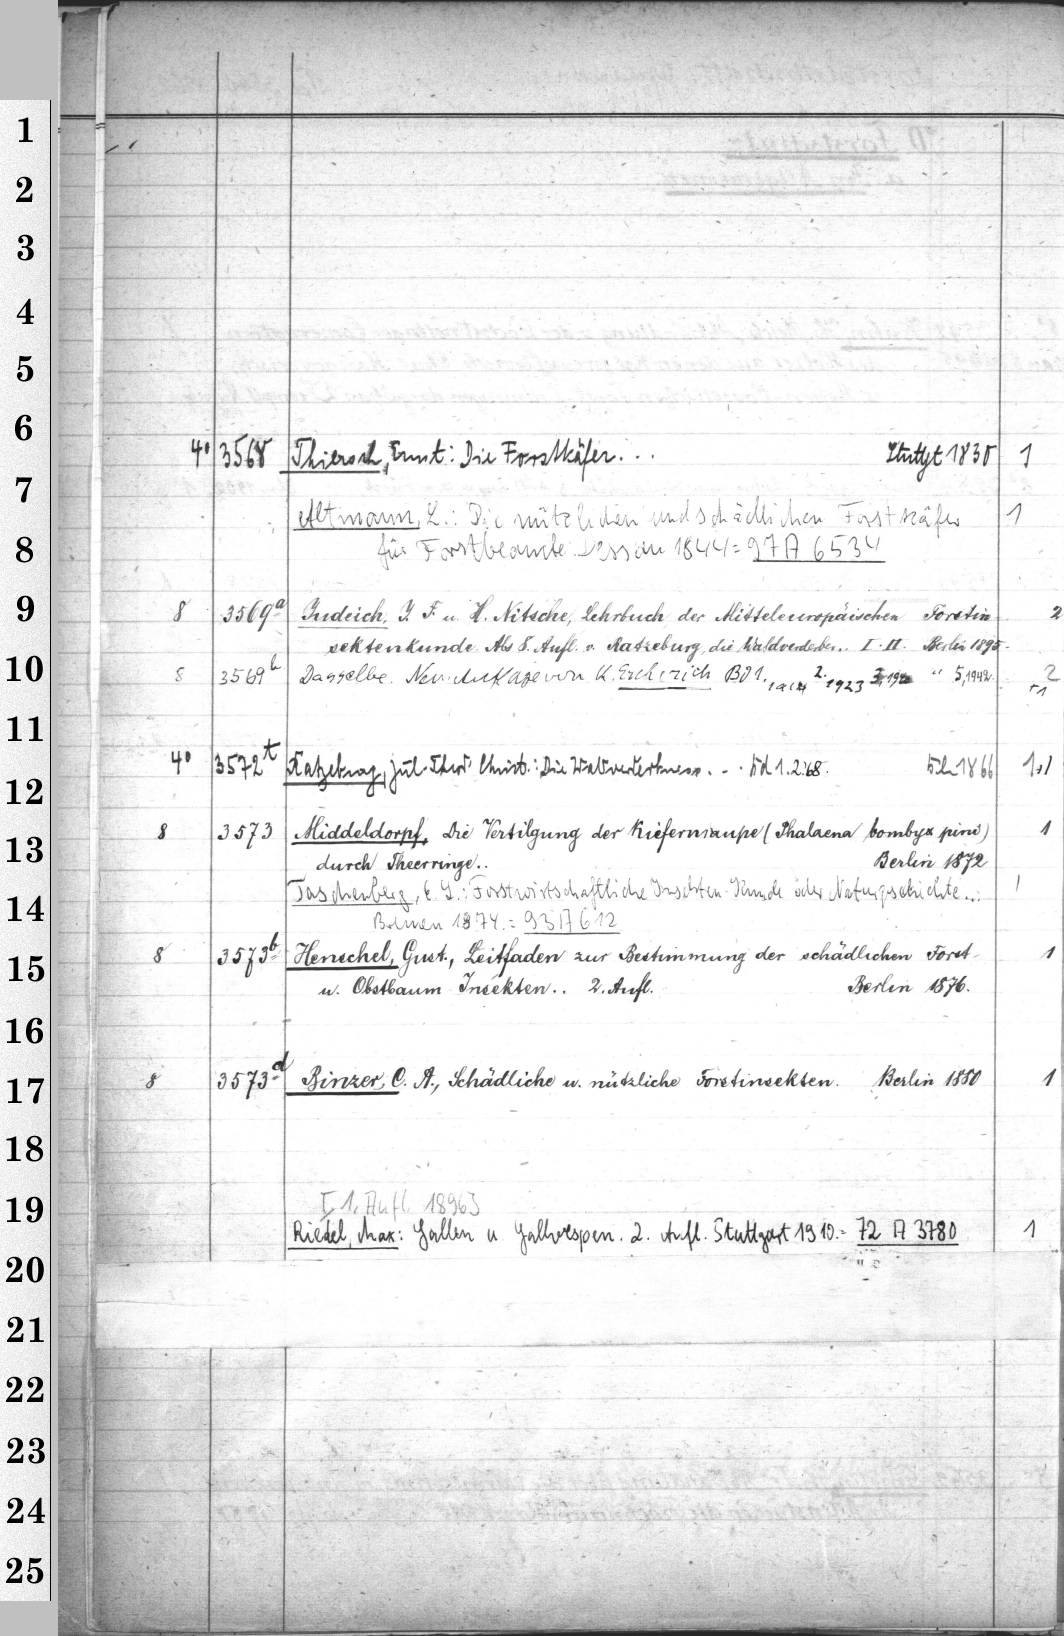 1
2
3
4
5
6
4° 3568 Thiersch, Ernst: Die Forstkäfer... Stuttgt 1830 1
7
Altmann, L.: Die nützlichen und schädlichen Forstkäfer 1
8
für Forstbeamte. Dessau 1844 = 97 A 6534
9
8 3569a Judeich, J. F. u. H. Nitsche, Lehrbuch der Mitteleuropäischen Forstin 2
sektenkunde. Als 8. Aufl. v. Ratzeburg, die Waldverderber.. I. II. Berlin 1895.
10
8 3569b Dasselbe. Neu von K. Escherich Bd 1. 1914 2. 1923 3, " 5, 1942. 2 +1
11
4° 3572t Ratzeburg, Jul. Theod. Christ.: Die Waldverderbniss... Bd 1.2. 68. Bln 1866 1+1
12
8 3573 Middeldorpf, Die Vertilgung der Kiefernraupe (Phalaena bombyx pini) 1
13
durch Theerringe.. Berlin 1872
Taschenberg, E. L.: Forstwirtschaftliche Insekten-Kunde oder Naturgeschichte... 1
14
Bremen 1874. = 93 A 612
8 3573b Henschel, Gust., Leitfaden zur Bestimmung der schädlichen Forst- 1
15
u. Obstbaum-Insekten.. 2. Aufl. Berlin 1876.
16
8 3573d Binzer, C. A., Schädliche u. nützliche Forstinsekten. Berlin 1880 1
17
18
[1. Aufl. 1896]
19
Riedel, Max: Gallen u. Gallwespen. 2. Aufl. Stuttgart 1910. = 72 A 3780 1
20
21
22
23
24
25